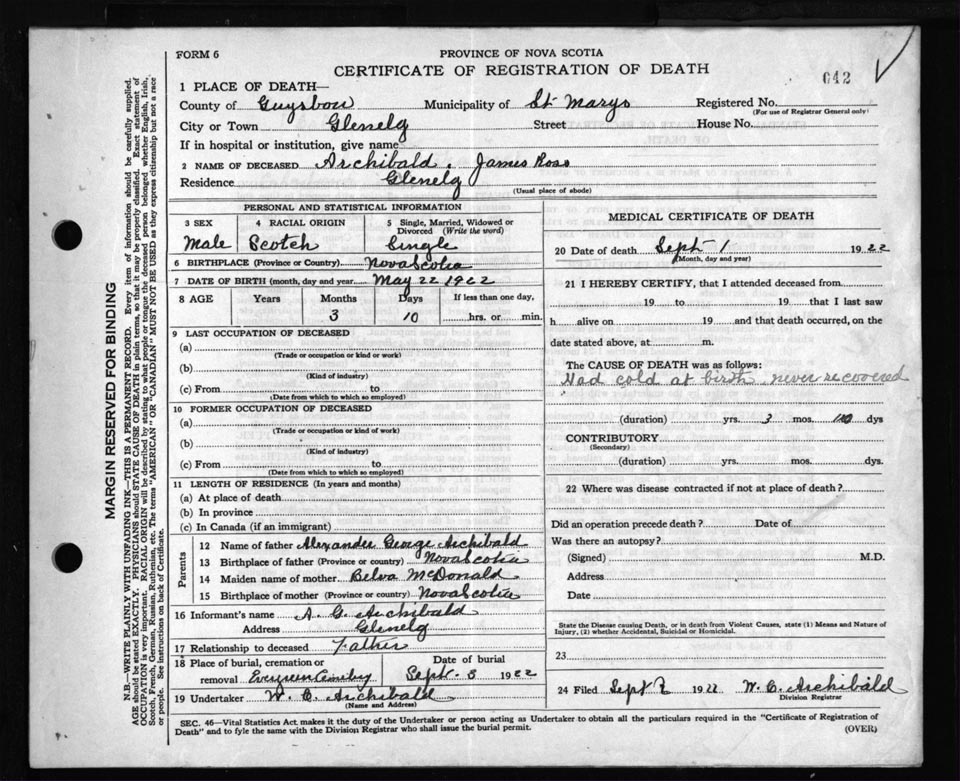 FORM 6
PROVINCE OF NOVA SCOTIA
CERTIFICATE OF REGISTRATION OF DEATH
642
1 PLACE OF DEATH—
County of Guysboro Municipality of St Marys Registered No.
(For use of Registrar General only)
City or Town Glenelg Street House No.
If in hospital or institution, give name
2 NAME OF DECEASED Archibald. James Ross
Residence Glenelg
(Usual place of abode)
PERSONAL AND STATISTICAL INFORMATION
3 SEX 4 RACIAL ORIGIN 5 Single, Married, Widowed or
Divorced (Write the word)
Male Scotch Single
6 BIRTHPLACE (Province or Country) Nova Scotia
7 DATE OF BIRTH (month, day and year) May 22 1922
8 AGE Years Months Days If less than one day,
3 10 hrs. or min.
9 LAST OCCUPATION OF DECEASED
(a)
(Trade or occupation or kind or work)
(b)
(Kind of industry)
(c) From to
(Date from which to which so employed)
10 FORMER OCCUPATION OF DECEASED
(a)
(Trade or occupation or kind of work)
(b)
(Kind of industry)
(c) From to
(Date from which to which so employed)
11 LENGTH OF RESIDENCE (In years and months)
(a) At place of death
(b) In province
(c) In Canada (if an immigrant)
Parents
12 Name of father Alexander George Archibald
13 Birthplace of father (Province or country) Nova Scotia
14 Maiden name of mother Belva McDonald
15 Birthplace of mother (Province or country) Nova Scotia
16 Informant's name A. G. Archibald
Address Glenelg
17 Relationship to deceased Father
18 Place of burial, cremation or Date of burial
removal Evergreen Cemetery Sept. 3 1922
19 Undertaker W. C. Archibald
(Name and Address)
MEDICAL CERTIFICATE OF DEATH
20 Date of death Sept 1 1922
(Month, day and year)
21 I HEREBY CERTIFY, that I attended deceased from
19 to 19 that I last saw
h alive on 19 and that death occurred, on the
date stated above, at m.
The CAUSE OF DEATH was as follows:
Had cold at birth never recovered
(duration) yrs. 3 mos. 10 dys
CONTRIBUTORY
(Secondary)
(duration) yrs. mos. dys.
22 Where was disease contracted if not at place of death?
Did an operation precede death? Date of
Was there an autopsy?
(Signed) M.D.
Address
Date
State the Disease causing Death, or in death from Violent Causes, state (1) Means and Nature of
Injury, (2) whether Accidental, Suicidal or Homicidal.
23
24 Filed Sept 1922 W. C. Archibald
Division Registrar
SEC. 46—Vital Statistics Act makes it the duty of the Undertaker or person acting as Undertaker to obtain all the particulars required in the "Certificate of Registration of
Death" and to fyle the same with the Division Registrar who shall issue the burial permit.
(OVER)
MARGIN RESERVED FOR BINDING
N.B.—WRITE PLAINLY WITH UNFADING INK—THIS IS A PERMANENT RECORD. Every item of information should be carefully supplied.
AGE should be stated EXACTLY. PHYSICIANS should STATE CAUSE OF DEATH in plain terms, so that it may be properly classified. Exact statement of
OCCUPATION is very important. RACIAL ORIGIN will be described by stating to what people or tongue the deceased person belonged whether English, Irish,
Scotch, French, German, Russian, Ruthenian, etc. The terms "AMERICAN" OR "CANADIAN" MUST NOT BE USED as they express citizenship but not a race
or people. See instructions on back of Certificate.